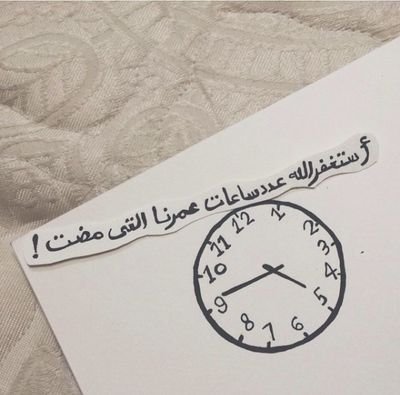 أستغفرالله عدد ساعات عمرنا التى مضت !
12
1
2
3
4
5
6
7
8
9
10
11